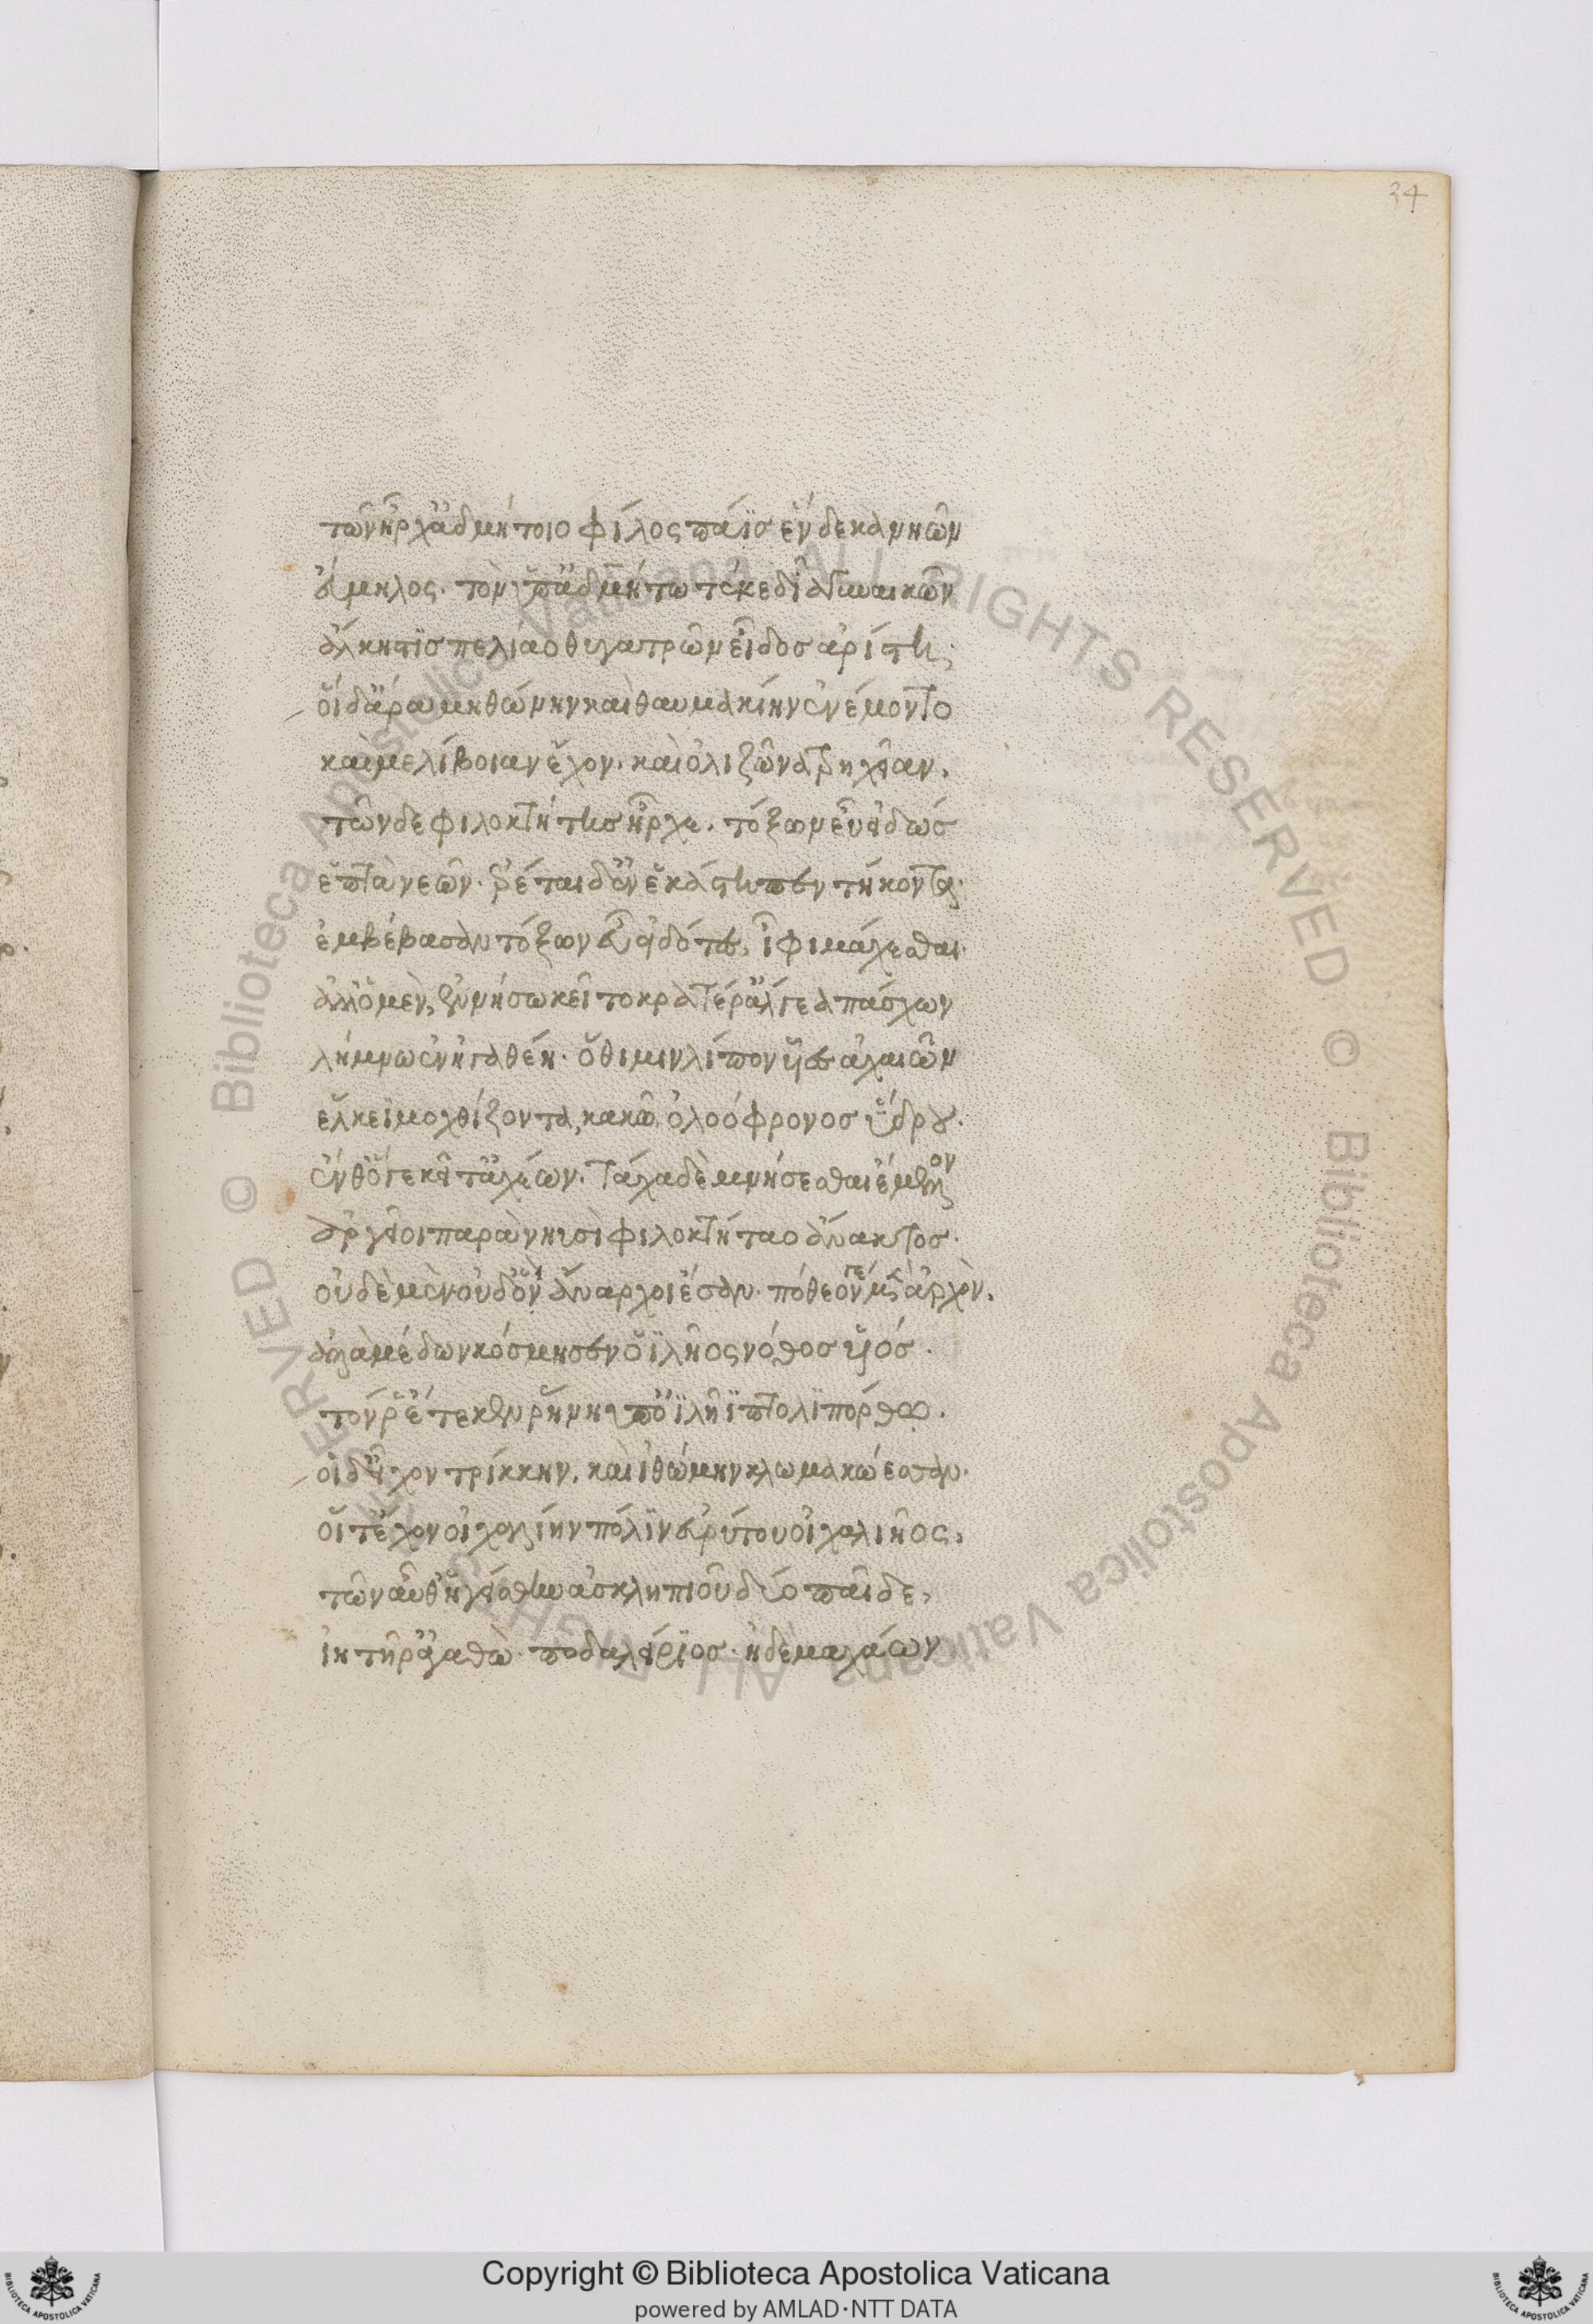 34
τῶν ἦρχ' ἀδμήτοιο φίλος πάϊς ἕνδεκα νηῶν
εὔμηλος. τὸν ὑπ' ἀδμήτω τέκε δῖα γυναικῶν
ἄλκηστις πελίαο θυγατρῶν εἶδος ἀρίστη;
οἵ δ' ἄρα μηθώνην καὶ θαυμακίην ἐνέμοντο
καὶ μελίβοιαν ἔχον. καὶ ὀλιζῶνα τρηχεῖαν.
τῶν δὲ φιλοκτήτης ἦρχε. τόξων εὖ εἰδώς
ἑπτὰ νεῶν. ἐρέται δ' ἐν ἑκάστη πεντήκοντα.
ἐμβέβασαν τόξων εὖ εἰδότες. ἶφι μάχεσθαι.
ἀλλ' ὃ μὲν, ἐν νήσω κεῖτο κρατέρ' ἄλγεα πάσχων
λήμνω ἐν ἠγαθέη. ὅθι μιν λίπον υἷες ἀχαιῶν
ἕλκεϊ μοχθίζοντα, κακῶ ὀλοόφρονος ὕδρου.
ἔνθ' ὅ γε κεῖτ' ἀχέων. τάχα δὲ μνήσεσθαι ἔμελλον
ἀργεῖοι παρὰ νηυσὶ φιλοκτήταο ἄνακτος.
οὐδὲ μὲν οὐδ' οἳ ἄναρχοι ἔσαν. πόθεόν γε μὲν ἀρχὸν.
ἀλλὰ μέδων κόσμησεν ὀϊλῆος νόθος υἱός.
τόν ῥ' ἔτεκεν ῥήνη ὑπ' ὀϊλῆϊ πτολιπόρθω.
οἳ δ' εἶχον τρίκκην. καὶ ἰθώμην κλωμακώεσσαν.
οἵ τ' ἔχον οἰχαλίην πόλιν εὐρύτου οἰχαλιῆος.
τῶν αὖθ' ἡγείσθην ἀσκληπιοῦ δύο παῖδε.
ἰητῆρ' ἀγαθὼ. ποδαλείριος. ἠδὲ μαχάων
© Biblioteca Apostolica Vaticana ALL RIGHTS RESERVED © Biblioteca Apostolica Vaticana ALL RIGHTS RESERVED
Copyright © Biblioteca Apostolica Vaticana
powered by AMLAD·NTT DATA
BIBLIOTECA APOSTOLICA VATICANA
BIBLIOTECA APOSTOLICA VATICANA